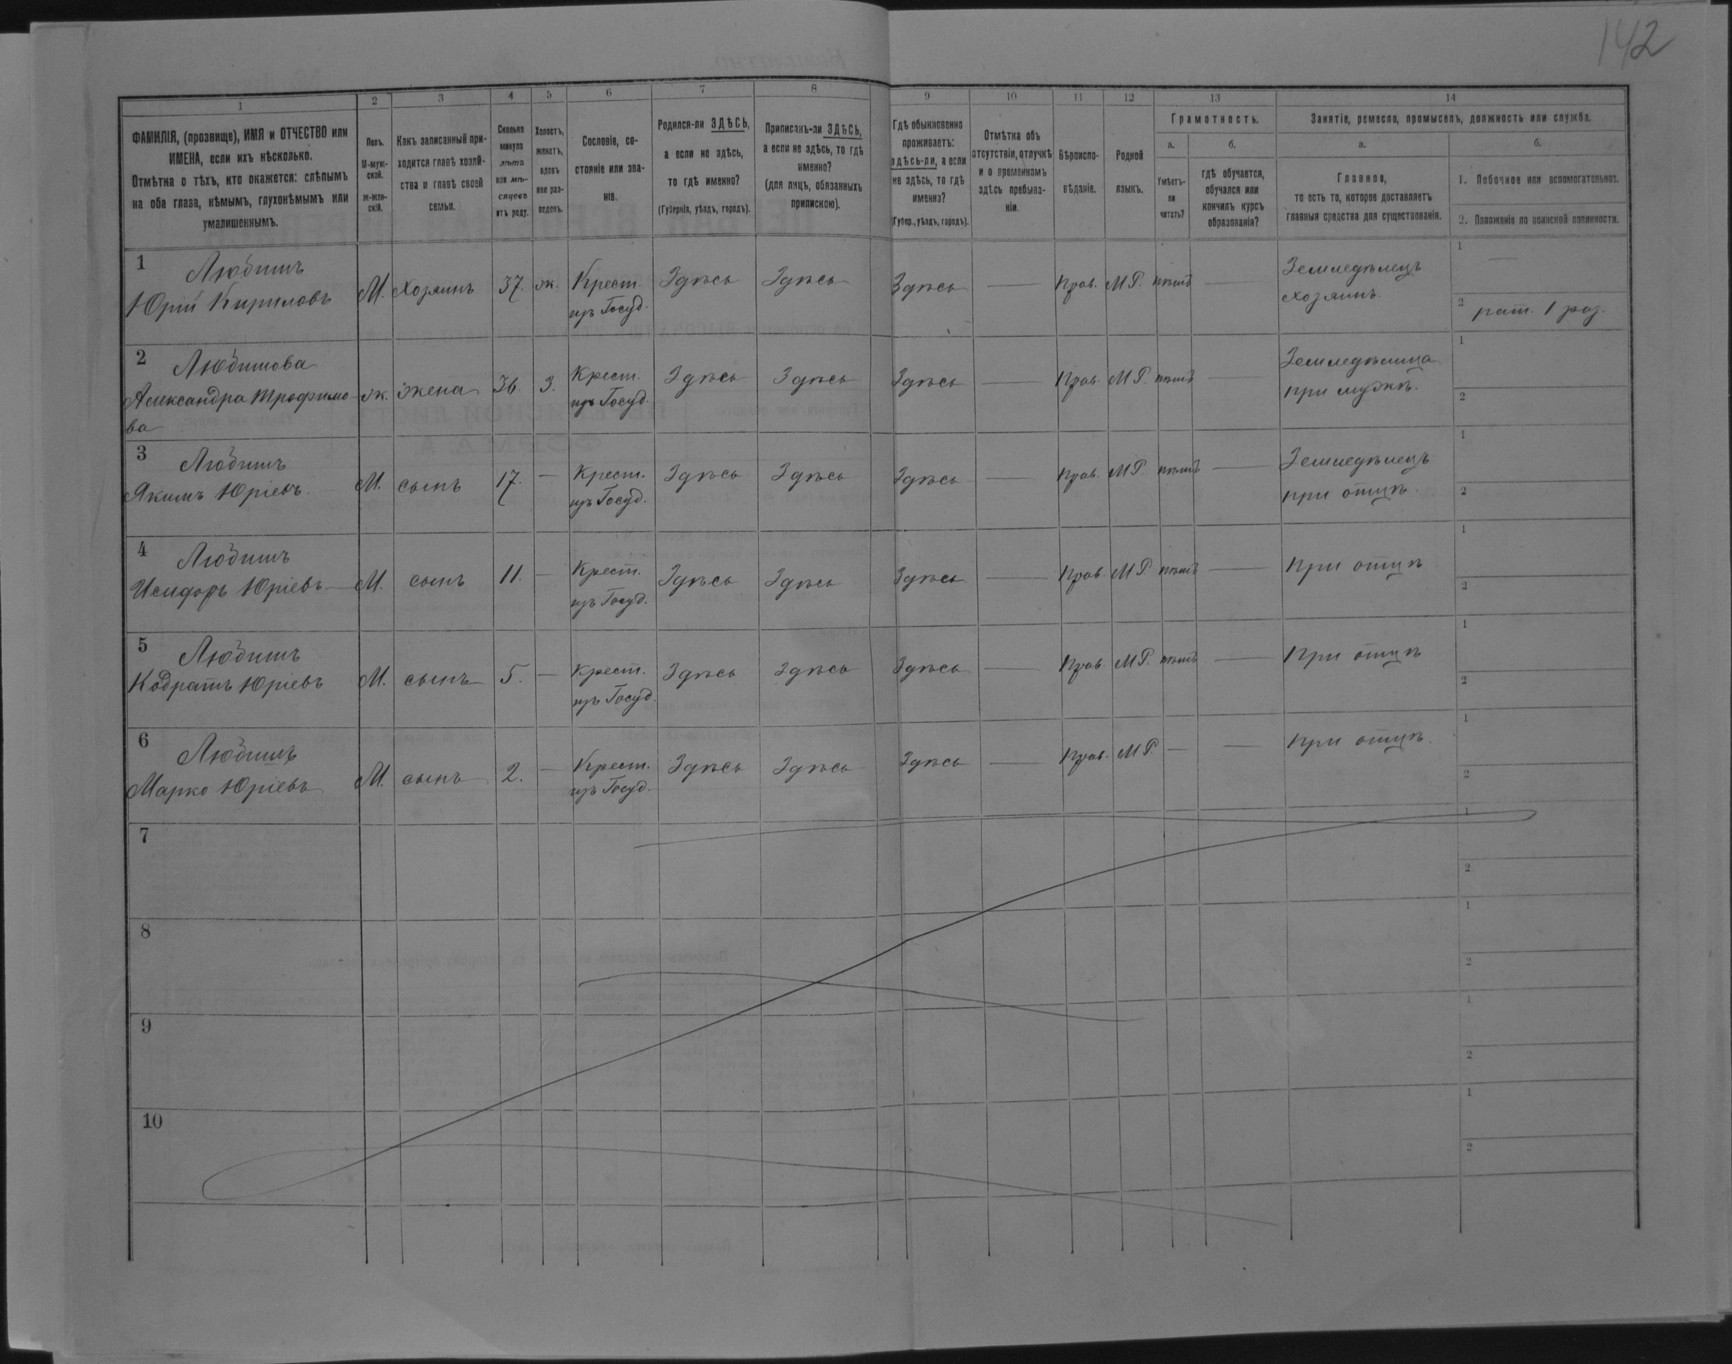 142
1 2 3 4 5 6 7 8 9 10 11 12 13 14
ФАМИЛІЯ, (прозвище), ИМЯ и ОТЧЕСТВО или
ИМЕНА, если ихъ нѣсколько.
Отмѣтка о тѣхъ, кто окажется: слѣпымъ
на оба глаза, нѣмымъ, глухонѣмымъ или
умалишеннымъ.
Полъ.
М-муж-
ской.
Ж-жен-
скій.
Какъ записанный при-
ходится главѣ хозяй-
ства и главѣ своей
семьи.
Сколько
минуло
лѣтъ
или мѣ-
сяцевъ
отъ роду.
Холостъ,
женатъ,
вдовъ
или раз-
веденъ.
Сословіе, со-
стояніе или зва-
ніе.
Родился-ли ЗДѢСЬ,
а если не здѣсь,
то гдѣ именно?
(Губернія, уѣздъ, городъ).
Приписанъ-ли ЗДѢСЬ,
а если не здѣсь, то гдѣ
именно?
(для лицъ, обязанныхъ
припискою).
Гдѣ обыкновенно
проживаетъ:
здѣсь-ли, а если
не здѣсь, то гдѣ
именно?
(Губер., уѣздъ, городъ).
Отмѣтка объ
отсутствіи, отлучкѣ
и о временномъ
здѣсь пребыва-
ніи.
Вѣроиспо-
вѣданіе.
Родной
языкъ.
Грамотность.
а.
Умѣетъ-
ли
читать?
б.
гдѣ обучается,
обучался или
кончилъ курсъ
образованія?
Занятіе, ремесло, промыселъ, должность или служба.
а.
Главное,
то есть то, которое доставляетъ
главныя средства для существованія.
б.
1. Побочное или вспомогательное.
2. Положеніе по воинской повинности.
1 Любишъ
Юрій Кириловъ М. Хозяинъ 37. ж. Крест. Здѣсь Здѣсь Здѣсь — Прав. М.Р. нѣтъ — Земледѣлецъ 1 —
изъ Госуд. хозяинъ. 2 рат. 1 раз.
2 Любишова
Александра Трофимо- ж. жена 36. З. Крест. Здѣсь Здѣсь Здѣсь — Прав. М.Р. нѣтъ — Земледѣлица 1
ва изъ Госуд. при мужѣ. 2
3 Любишъ
Якимъ Юріевъ М. сынъ 17. — Крест. Здѣсь Здѣсь Здѣсь — Прав. М.Р. нѣтъ — Земледѣлецъ 1
изъ Госуд. при отцѣ. 2
4 Любишъ
Исидоръ Юріевъ М. сынъ 11. — Крест. Здѣсь Здѣсь Здѣсь — Прав. М.Р. нѣтъ — При отцѣ 1
изъ Госуд. 2
5 Любишъ
Кодратъ Юріевъ М. сынъ 5. — Крест. Здѣсь Здѣсь Здѣсь — Прав. М.Р. нѣтъ — При отцѣ 1
изъ Госуд. 2
6 Любишъ
Марко Юріевъ М. сынъ 2. — Крест. Здѣсь Здѣсь Здѣсь — Прав. М.Р. — — При отцѣ. 1
изъ Госуд. 2
7 1
2
8 1
2
9 1
2
10 1
2